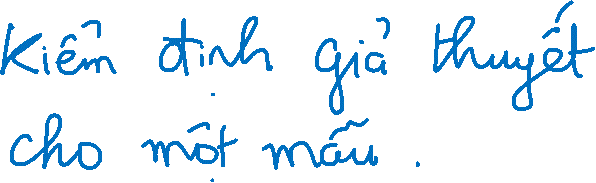 Kiểm định giả thuyết
cho một mẫu.